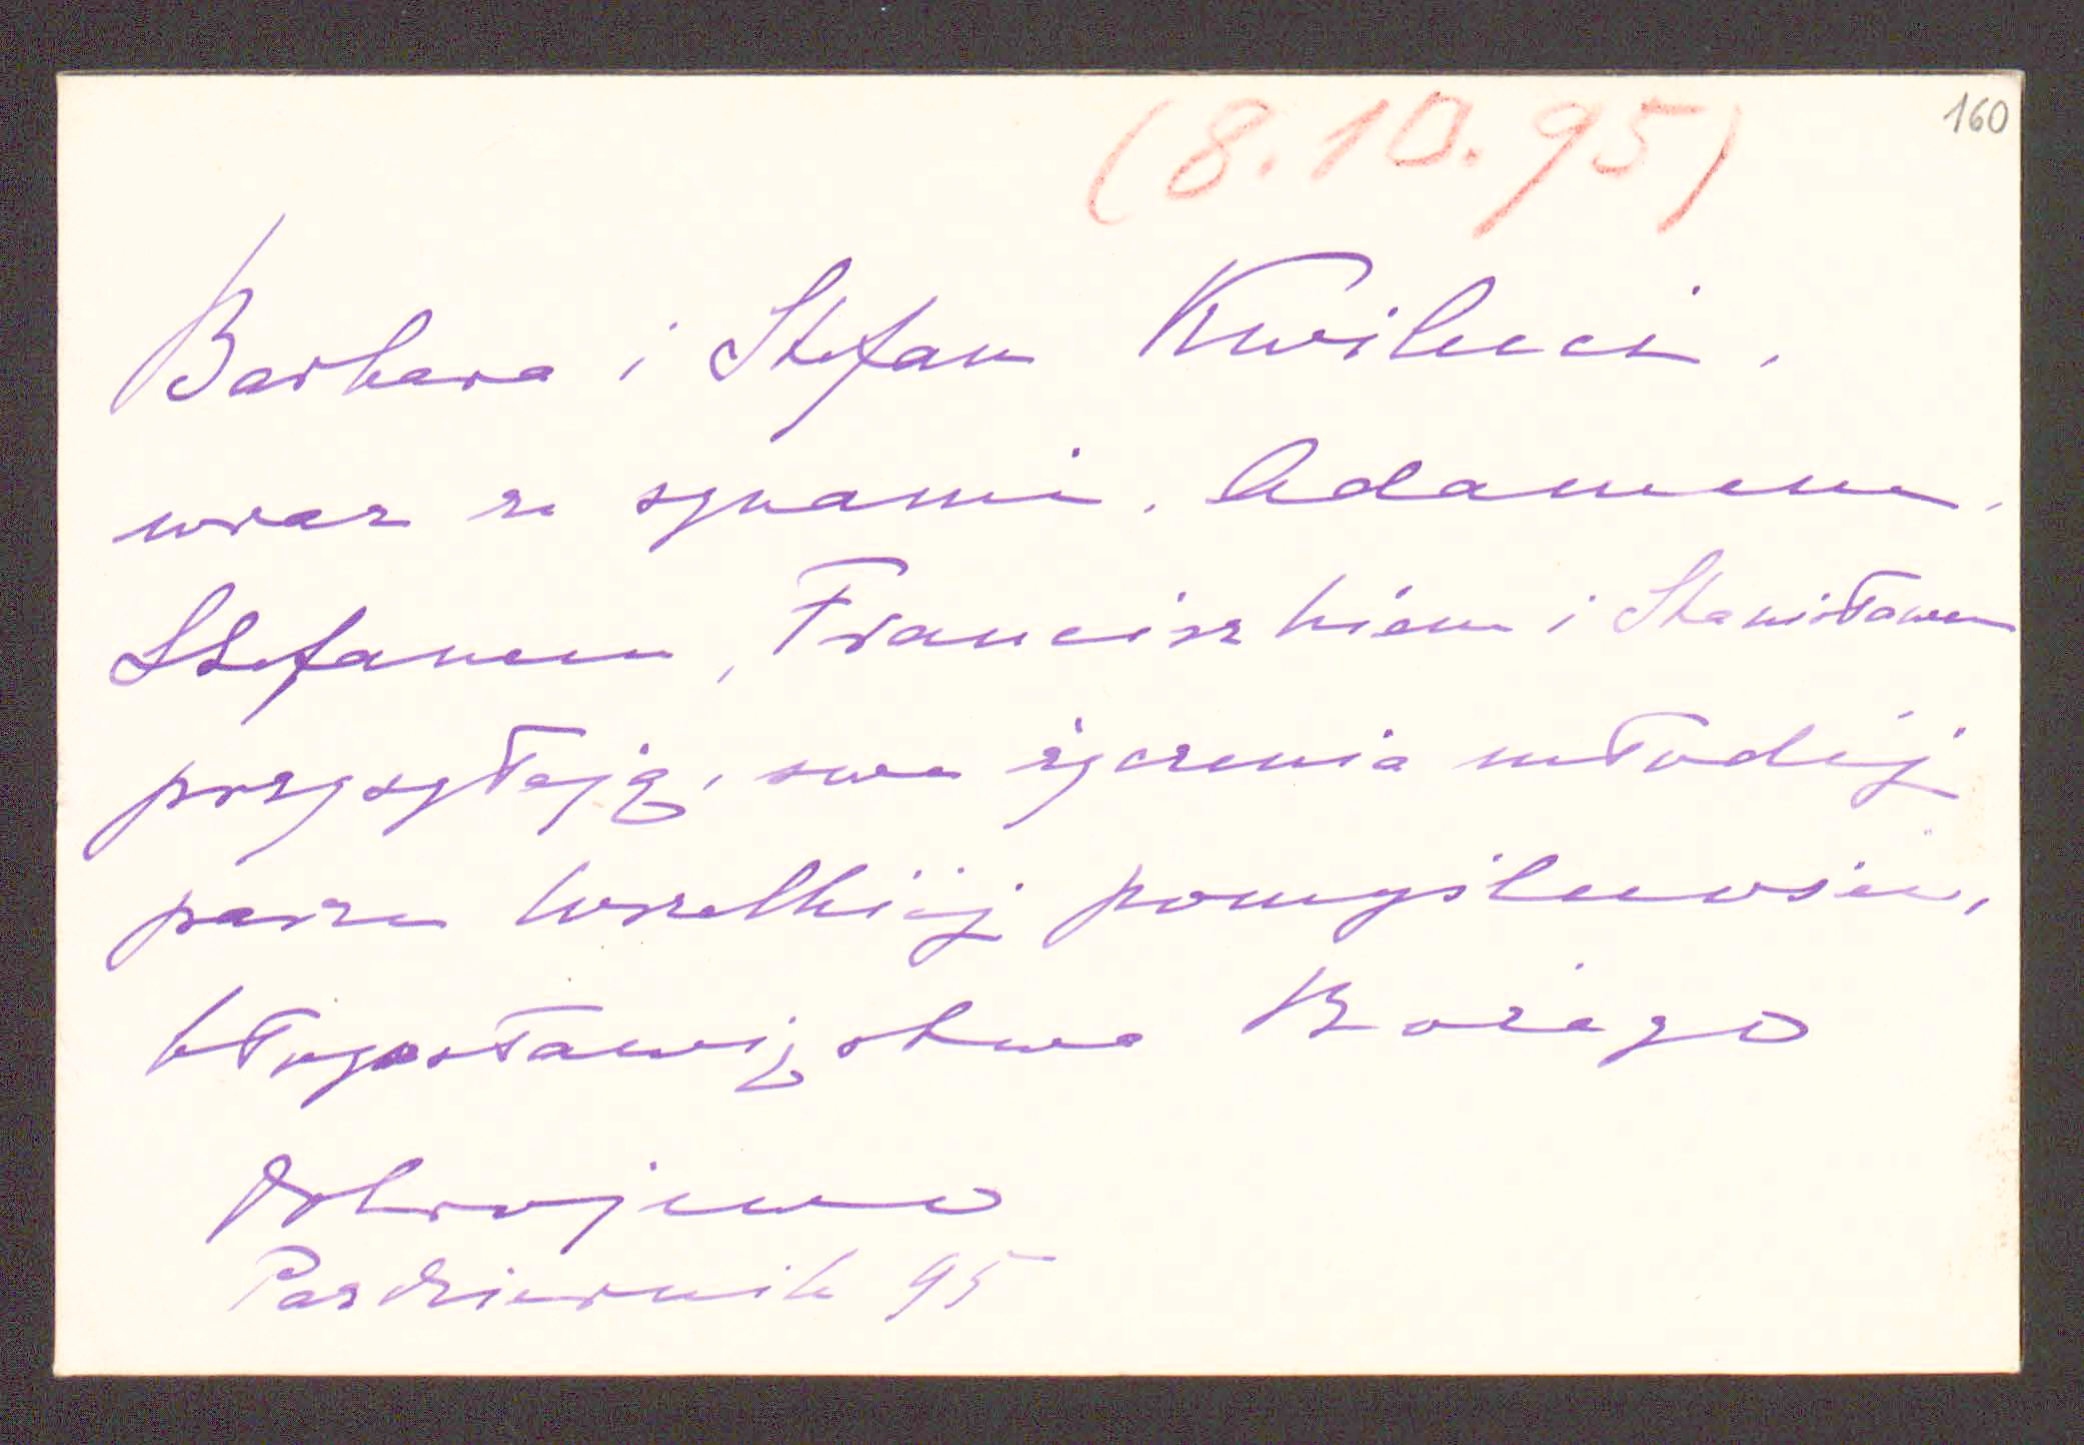 (8.10.95)
160
Barbara i Stefan Kwileccy,
wraz ze synami, Adamem,
Stefanem, Franciszkiem i Stanisławem
przysyłają, swe życzenia młodéj
parze wszelkiéj pomyślności,
błogosławięstwa Bożego
Dobrojewo
Pazdziernik 95